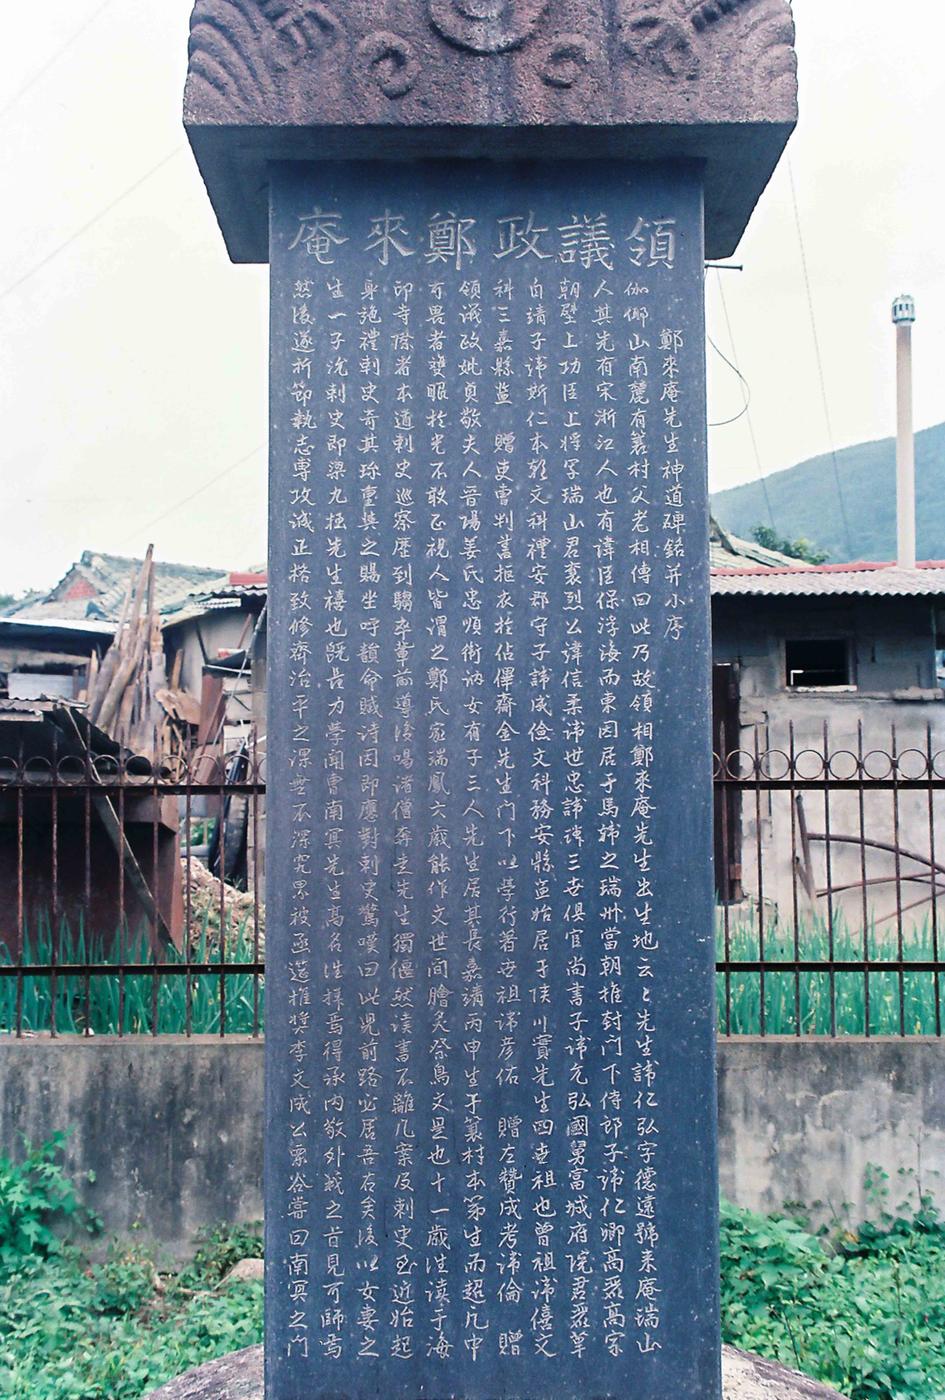 領議政鄭來庵
鄭來庵先生神道碑銘并小序
伽倻山南麓有篡村父老相傳曰此乃故領相鄭來庵先生出生地云云先生諱仁弘字德遠號来庵瑞山
人其先有宋浙江人也有諱臣保浮海而東因居于馬韓之瑞州當朝推封門下侍郎子諱仁卿高麗高宗
朝壁上功臣上將軍瑞山君襄烈公諱信柔諱世忠諱瑋三世俱官尚書子諱允弘國舅富城府院君
自靖子諱斯仁本朝文科禮安郡守子諱成儉文科務安縣監始居于陜川實先生四世祖也曾祖諱僖文
科三嘉縣監 贈吏曹判 摳衣於佔畢齋金先生門下以學行著世祖諱彦佑 贈左贊成考諱倫 贈
領議政妣貞敬夫人晋陽姜氏忠順衛訥女有子三人先生居其長嘉靖丙申生于篡村本第生而超凡中
可畏者雙眼於光不敢正視人皆謂之鄭氏家瑞鳳六歲能作文世間膾炙祭鳥文是也十一歲往讀于海
印寺際者本道刺史巡察歷到騶卒輩前導後喝諸僧奔走先生獨偃然讀書不離几案及刺史至近始起
身施禮刺史奇其珍重與之賜坐呼韻命賦詩因即應對刺史驚嘆曰此兒前路必居吾右矣後以女妻之
生一子沇刺史即梁九拯先生禧也旣長力學聞曺南冥先生高名往拜焉得承內敬外義之旨見可師焉
然後遂折節執志專攻誠正格致修齊治平之課無不深究累被函筵推奬李文成公栗谷嘗曰南冥之門